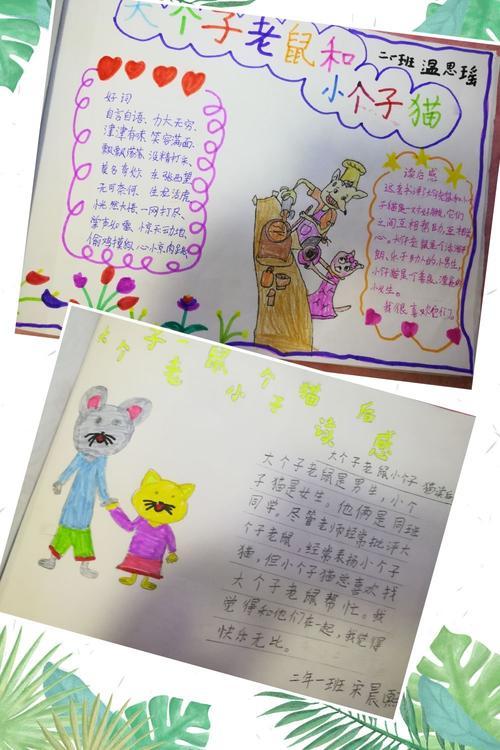 大个子老鼠和
小个子猫
二(一)班 温思瑶
好词
自言自语、力大无穷、
津津有味 笑容满面、
飘飘荡荡 没精打采、
莫名奇妙 东张西望
无可奈何、生龙活虎
恍然大悟、一网打尽、
掌击如雷、惊天动地、
偷鸡摸狗、心惊肉跳
读后感
这本书讲了大个子老鼠和小个
子猫是一对好朋友,它们
之间互相帮助,互相关
心。大个子老鼠是个活泼开
朗、乐于助人的小男生,
小个子猫是个善良、漂亮的
小女生。
我很喜欢它们。
大个子老鼠小个子猫
读后感
大个子老鼠小个子 猫读后
大个子老鼠是男生,小个
子猫是女生。他俩是同班
同学。尽管老师经常批评大
个子老鼠,经常表扬小个子
猫,但小个子猫总喜欢找
大个子老鼠帮忙。我
觉得和他们在一起,我觉得
快乐无比。
二年一班 宋晨熙